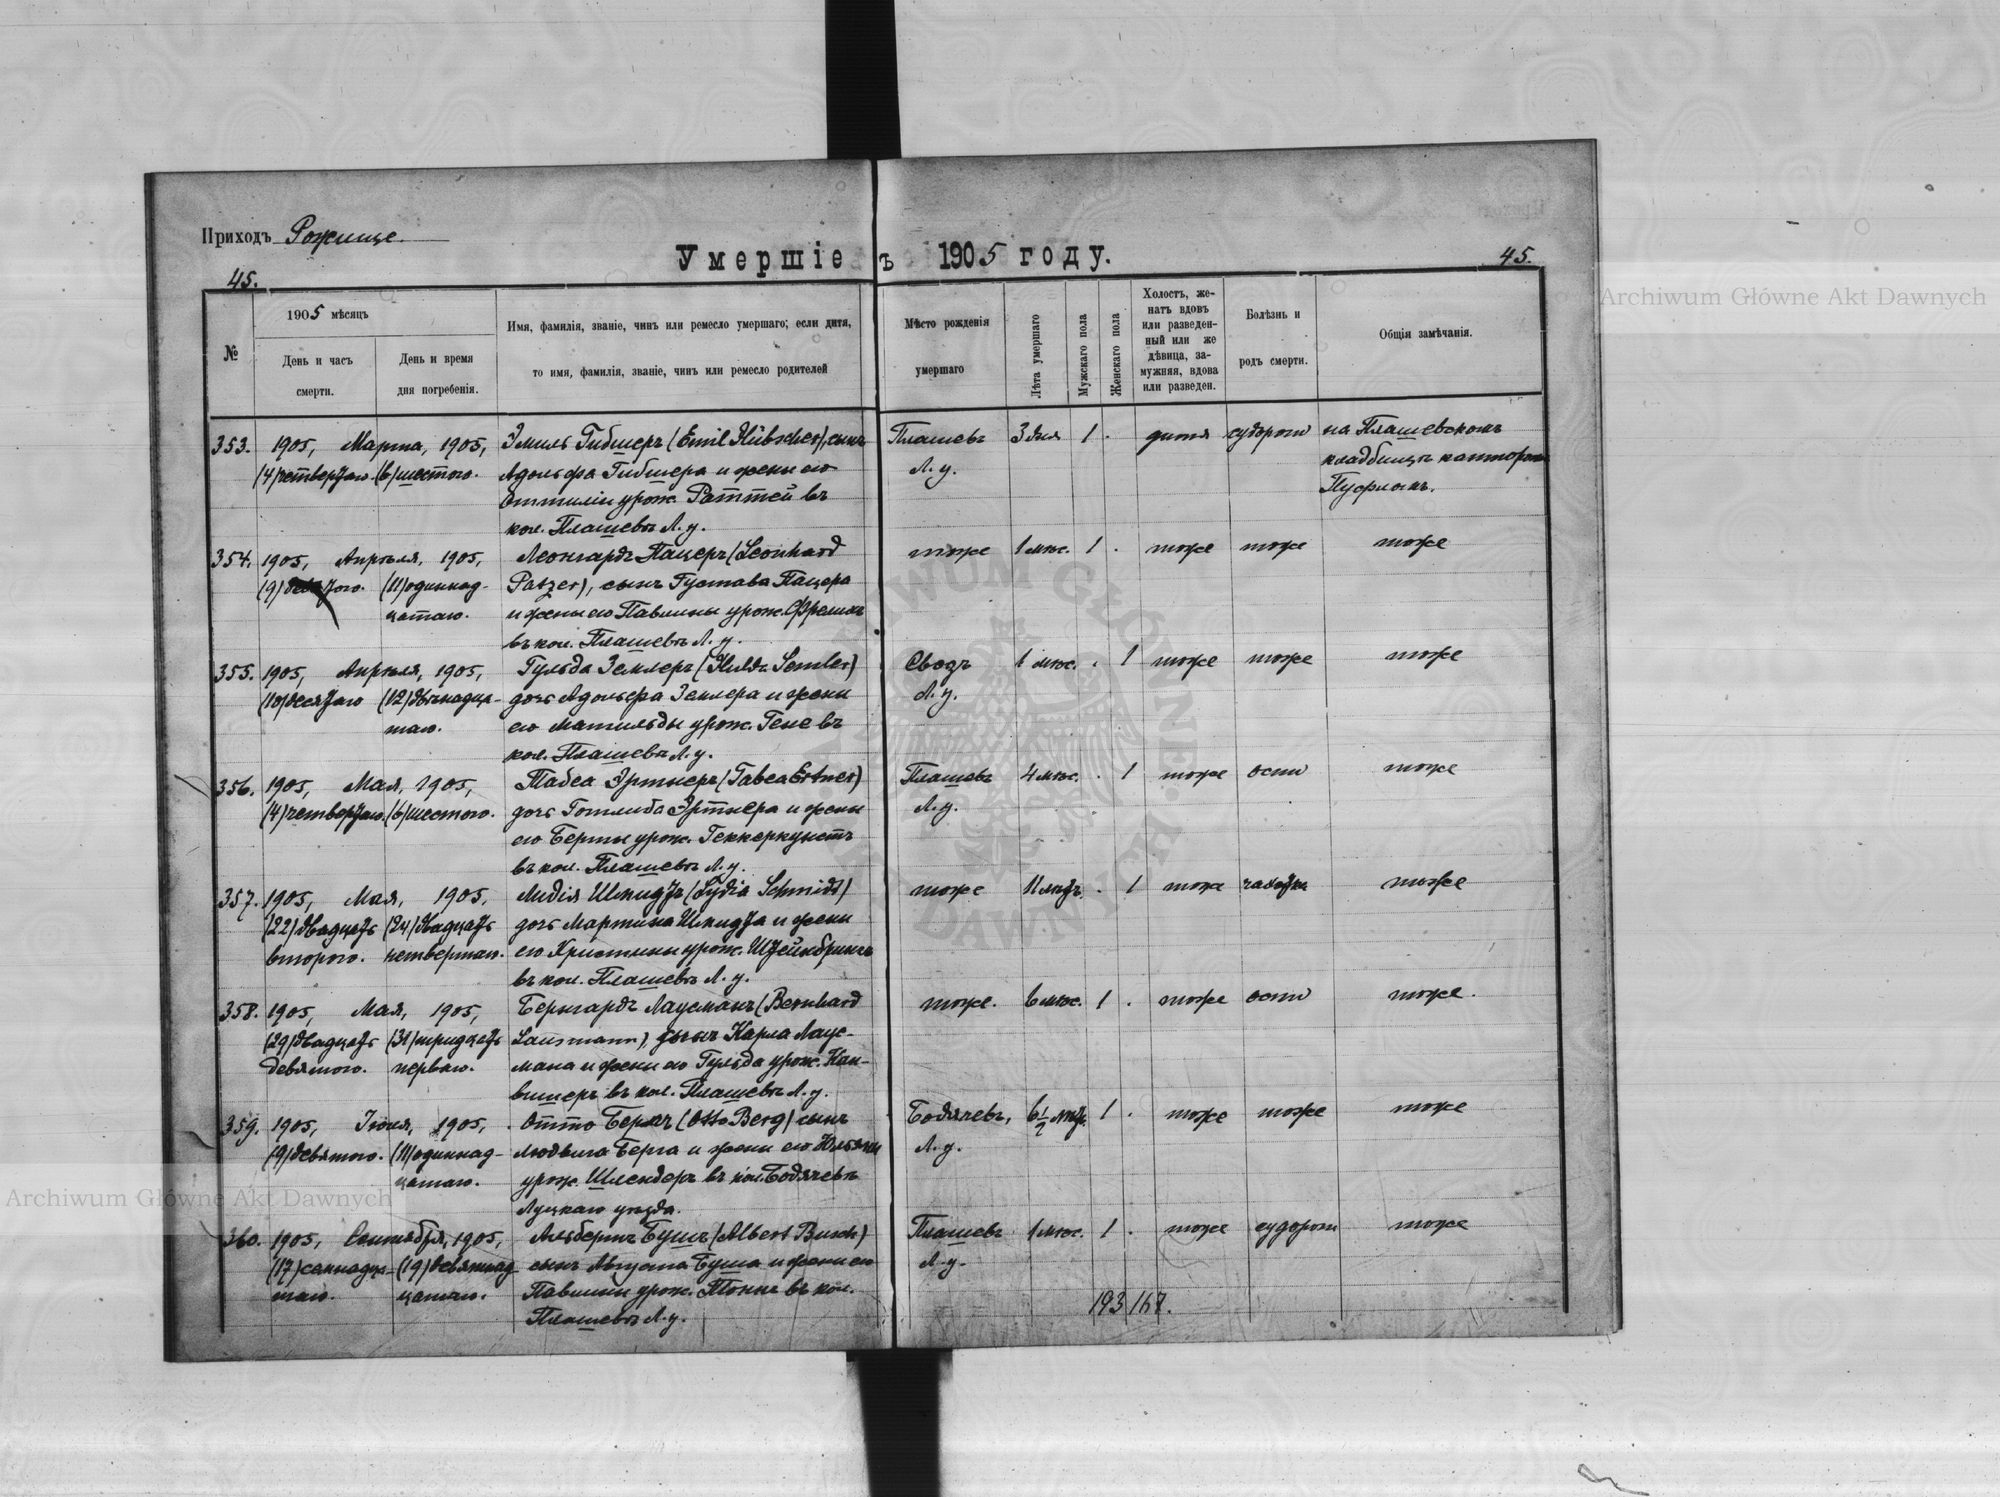 Приходъ Рожище.
Умершіе въ 1905 году.
45.
45.
№
1905 мѣсяцъ
День и часъ смерти.
День и время дня погребенія.
Имя, фамилія, званіе, чинъ или ремесло умершаго; если дитя,
то имя, фамилія, званіе, чинъ или ремесло родителей
Мѣсто рожденія умершаго
Лѣта умершаго
Мужскаго пола
Женскаго пола
Холостъ, же-
натъ вдовъ
или разведен-
ный или же
дѣвица, за-
мужняя, вдова
или разведен.
Болѣзнь и родъ смерти.
Общія замѣчанія.
353. 1905, Марта, 1905, Эмиль Гибшеръ (Emil Hübscher), сынъ Плашевъ 3 дня 1 . дитя судороги на Плашевскомъ
(4) четвертаго (6) шестого. Адольфа Гибшера и жены его Л. у. кладбищѣ канторомъ
Оттиліи урож. Раттей въ Пуфломъ.
кол. Плашевъ Л. у.
354. 1905, Апрѣля, 1905, Леонгардъ Пацеръ (Leonhard тоже 1 мѣс. 1 . тоже тоже тоже
(9) девятого. (11) одиннад- Patzer), сынъ Густава Пацера
цатаго. и жены его Павлины урож.
въ кол. Плашевъ Л. у.
355. 1905, Апрѣля, 1905, Гульда Землеръ (Hulda Semler) Сводзъ 1 мѣс. . 1 тоже тоже тоже
(10) десятаго (12) двѣнадца- дочь Адольфа Землера и жены Л. у.
таго. его Матильды урож. Гене въ
кол. Плашевъ Л. у.
356. 1905, Мая, 1905, Табеа Эртнеръ (Tabea Ertner) Плашевъ 4 мѣс. . 1 тоже оспы тоже
(4) четвертаго (6) шестого. дочь Готлиба Эртнера и жены Л. у.
его Берты урож. Геккеркунстъ
въ кол. Плашевъ Л. у.
357. 1905, Мая, 1905, Лидія Шмидтъ (Lydia Schmidt) тоже 11 мѣс. . 1 тоже чахотка тоже
(22) двадцать (24) двадцать дочь Мартина Шмидта и жены
второго. четвертаго. его Христины урож. Штейнбринкъ
въ кол. Плашевъ Л. у.
358. 1905, Мая, 1905, Бернгардъ Лаусманъ (Bernhard тоже. 6 мѣс. 1 . тоже оспы тоже.
(29) двадцать (31) тридцать Lausmann), сынъ Карла Лаус-
девятого. перваго. мана и жены его Гульда урож. Кан-
вишеръ въ кол. Плашевъ Л. у.
359. 1905, Іюня, 1905, Отто Бергъ (Otto Berg) сынъ Бодячевъ, 6 1/2 мѣс. 1 . тоже тоже тоже
(9) девятого. (11) одиннад- Людвига Берга и жены его Юльяны Л. у.
цатаго. урож. Шлендеръ въ кол. Бодячевъ
Луцкаго уѣзда.
360. 1905, Сентября, 1905, Альбертъ Бушъ (Albert Busch) Плашевъ 1 мѣс. 1 . тоже судороги тоже
(17) семнадца- (19) девятнад- сынъ Августа Буша и жены его Л. у.
таго. цатаго. Павлины урож. Тоннъ въ кол.
Плашевъ Л. у.
193 167.
Archiwum Główne Akt Dawnych
Archiwum Główne Akt Dawnych